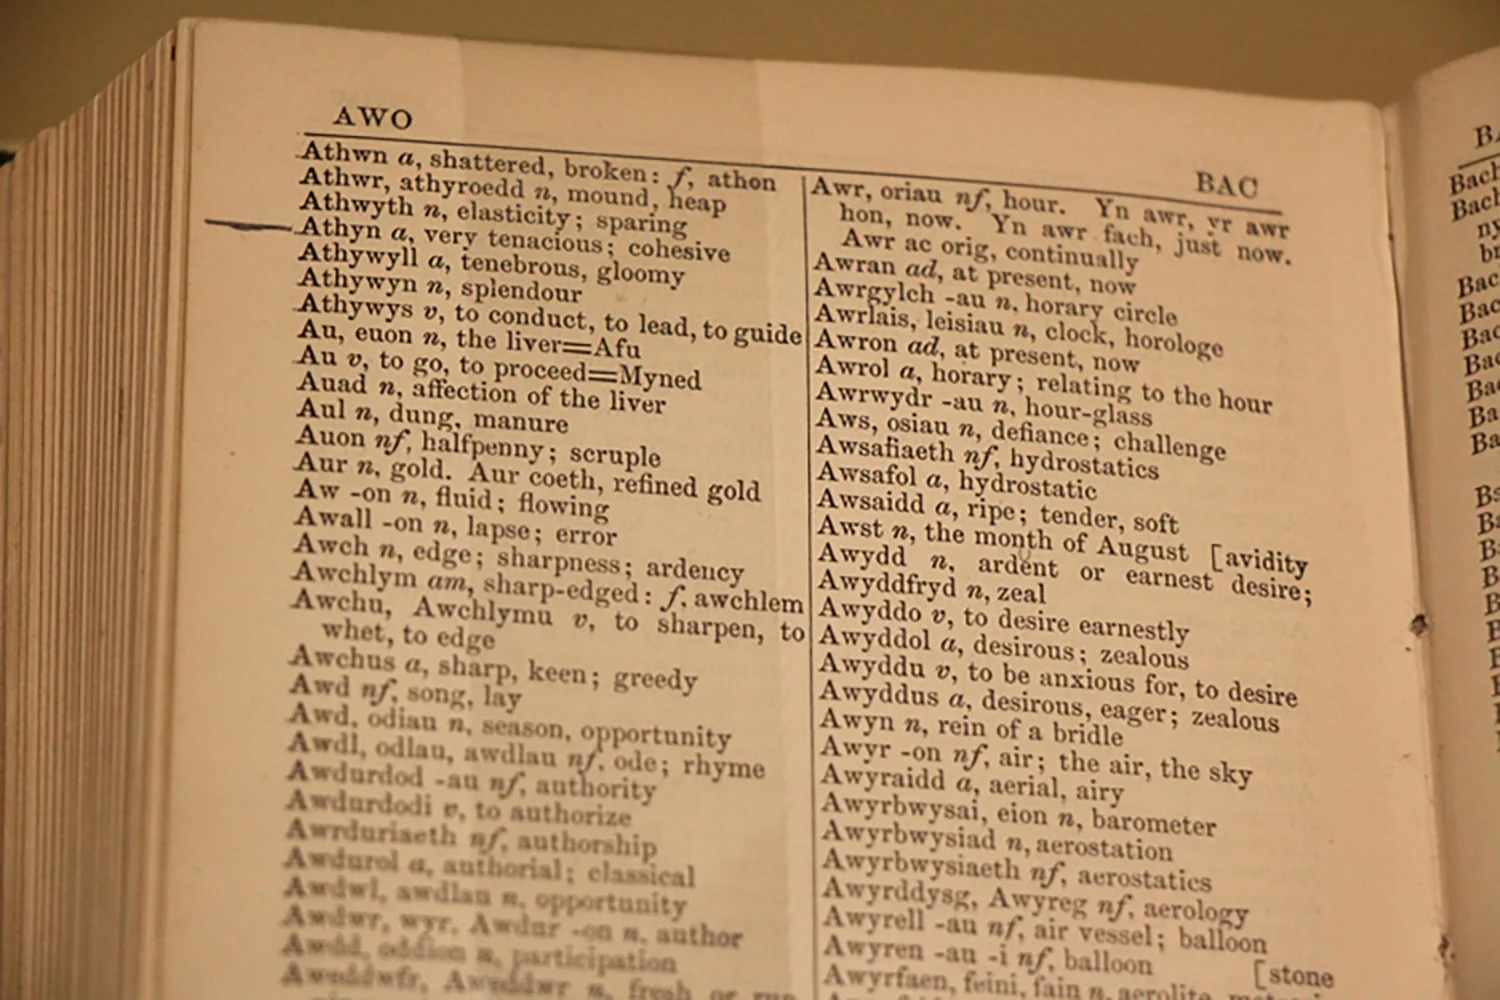 AWO
Athwn a, shattered, broken: f, athon
Athwr, athyroedd n, mound, heap
Athwyth n, elasticity; sparing
Athyn a, very tenacious; cohesive
Athywyll a, tenebrous, gloomy
Athywyn n, splendour
Athywys v, to conduct, to lead, to guide
Au, euon n, the liver=Afu
Au v, to go, to proceed=Myned
Auad n, affection of the liver
Aul n, dung, manure
Auon nf, halfpenny; scruple
Aur n, gold. Aur coeth, refined gold
Aw -on n, fluid; flowing
Awall -on n, lapse; error
Awch n, edge; sharpness; ardency
Awchlym am, sharp-edged: f, awchlem
Awchu, Awchlymu v, to sharpen, to
whet, to edge
Awchus a, sharp, keen; greedy
Awd nf, song, lay
Awd, odiau n, season, opportunity
Awdl, odlau, awdlau nf, ode; rhyme
Awdurdod -au nf, authority
Awdurdodi v, to authorize
Awrduriaeth nf, authorship
Awdurol a, authorial; classical
Awdwl, awdlau n, opportunity
Awdwr, wyr, Awdur -on n, author
Awdd, oddion n, participation
n, fresh or run
BAC
Awr, oriau nf, hour. Yn awr, yr awr
hon, now. Yn awr fach, just now.
Awr ac orig, continually
Awran ad, at present, now
Awrgylch -au n, horary circle
Awrlais, leisiau n, clock, horologe
Awron ad, at present, now
Awrol a, horary; relating to the hour
Awrwydr -au n, hour-glass
Aws, osiau n, defiance; challenge
Awsafiaeth nf, hydrostatics
Awsafol a, hydrostatic
Awsaidd a, ripe; tender, soft
Awst n, the month of August [avidity
Awydd n, ardent or earnest desire;
Awyddfryd n, zeal
Awyddo v, to desire earnestly
Awyddol a, desirous; zealous
Awyddu v, to be anxious for, to desire
Awyddus a, desirous, eager; zealous
Awyn n, rein of a bridle
Awyr -on nf, air; the air, the sky
Awyraidd a, aerial, airy
Awyrbwysai, eion n, barometer
Awyrbwysiad n, aerostation
Awyrbwysiaeth nf, aerostatics
Awyrddysg, Awyreg nf, aerology
Awyrell -au nf, air vessel; balloon
Awyren -au -i nf, balloon [stone
Awyrfaen, feini, fain n, aerolite,
Bach